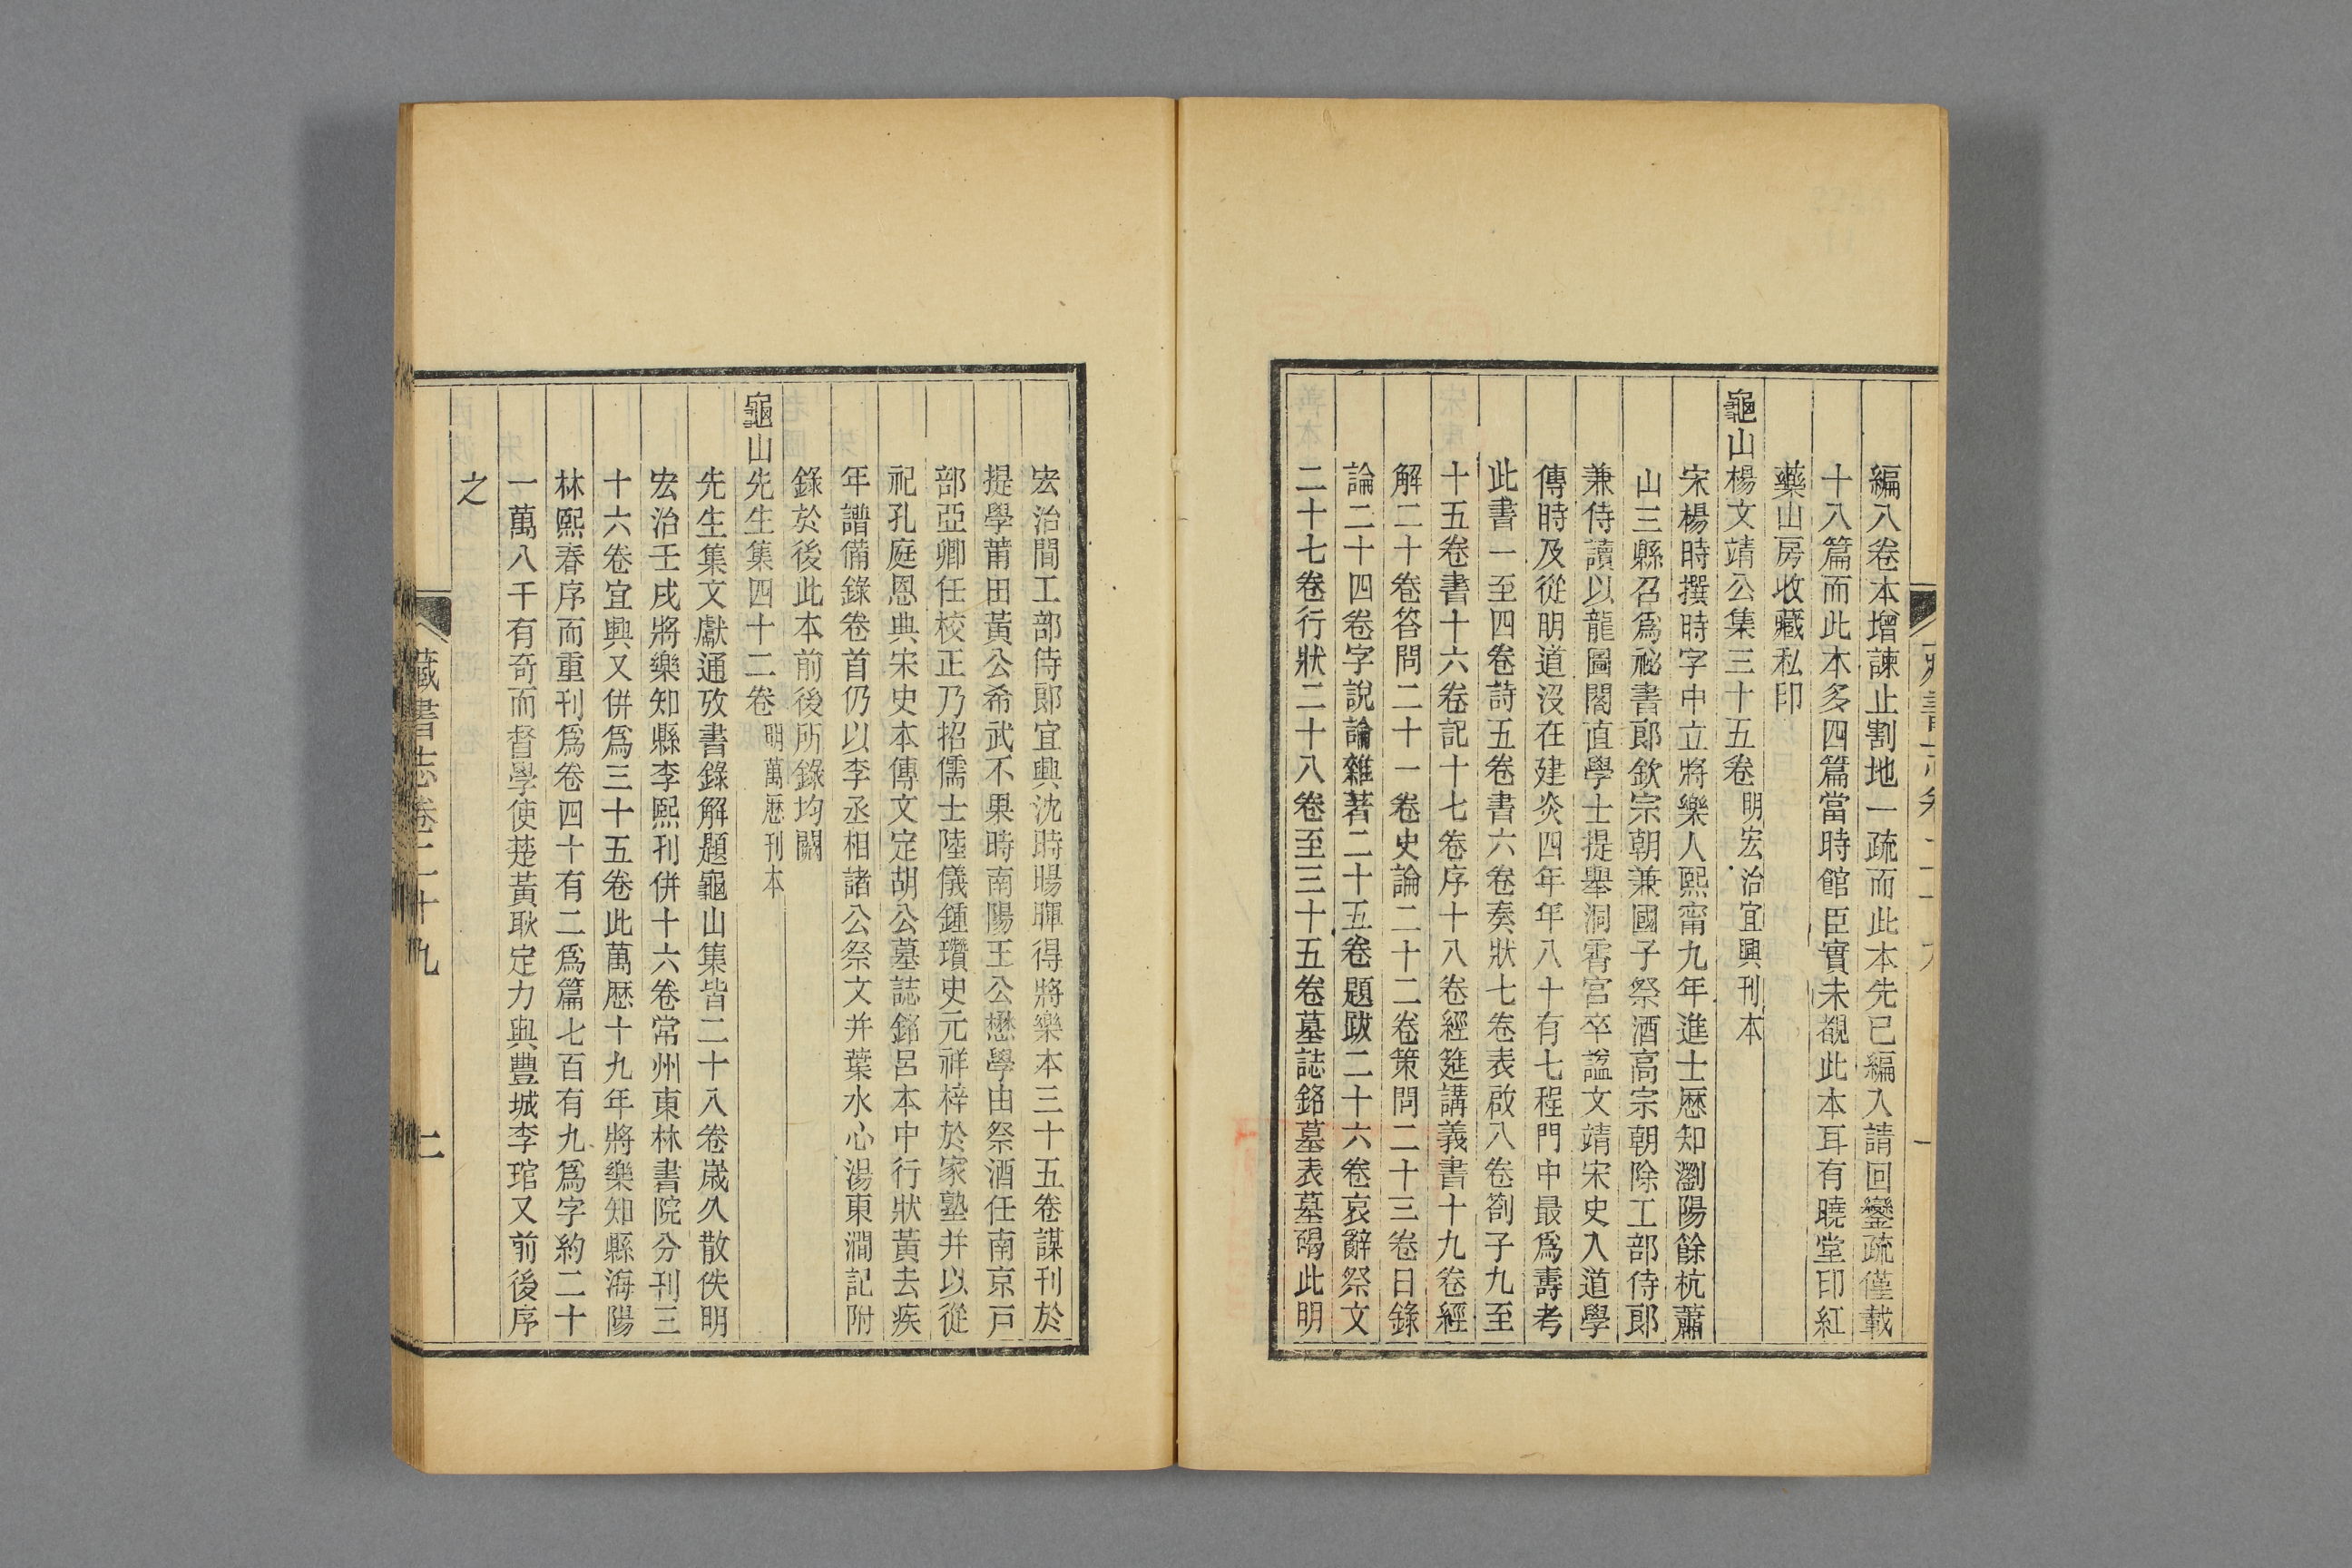 編八卷本增諫止割地一疏而此本先已編入請回鑾疏僅載
十八篇而此本多四篇當時館臣實未覩此本耳有曉堂印紅
藥山房收藏私印
龜山楊文靖公集三十五卷明宏治宜興刊本
宋楊時撰時字中立將樂人熙甯九年進士歷知瀏陽餘杭蕭
山三縣召爲祕書郎欽宗朝兼國子祭酒高宗朝除工部侍郎
兼侍讀以龍圖閣直學士提舉洞霄宮卒諡文靖宋史入道學
傳時及從明道沒在建炎四年年八十有七程門中最爲壽考
此書一至四卷詩五卷書六卷奏狀七卷表啟八卷劄子九至
十五卷書十六卷記十七卷序十八卷經筵講義書十九卷經
解二十卷答問二十一卷史論二十二卷策問二十三卷日錄
論二十四卷字說論雜著二十五卷題跋二十六卷哀辭祭文
二十七卷行狀二十八卷至三十五卷墓誌銘墓表墓碣此明
宏治間工部侍郎宜興沈時暘暉得將樂本三十五卷謀刊於
提學莆田黃公希武不果時南陽王公懋學由祭酒任南京戸
部亞卿任校正乃招儒士陸儀鍾瓚史元祥梓於家塾并以從
祀孔庭恩典宋史本傳文定胡公墓誌銘呂本中行狀黃去疾
年譜備錄卷首仍以李丞相諸公祭文并葉水心湯東澗記附
錄於後此本前後所錄均闕
龜山先生集四十二卷明萬厯刊本
先生集文獻通攷書錄解題龜山集皆二十八卷歲久散佚明
宏治壬戌將樂知縣李熙刊併十六卷常州東林書院分刊三
十六卷宜興又併爲三十五卷此萬厯十九年將樂知縣海陽
林熙春序而重刊爲卷四十有二爲篇七百有九爲字約二十
一萬八千有奇而督學使楚黃耿定力與豐城李琯又前後序
之
藏書志卷二十九 二